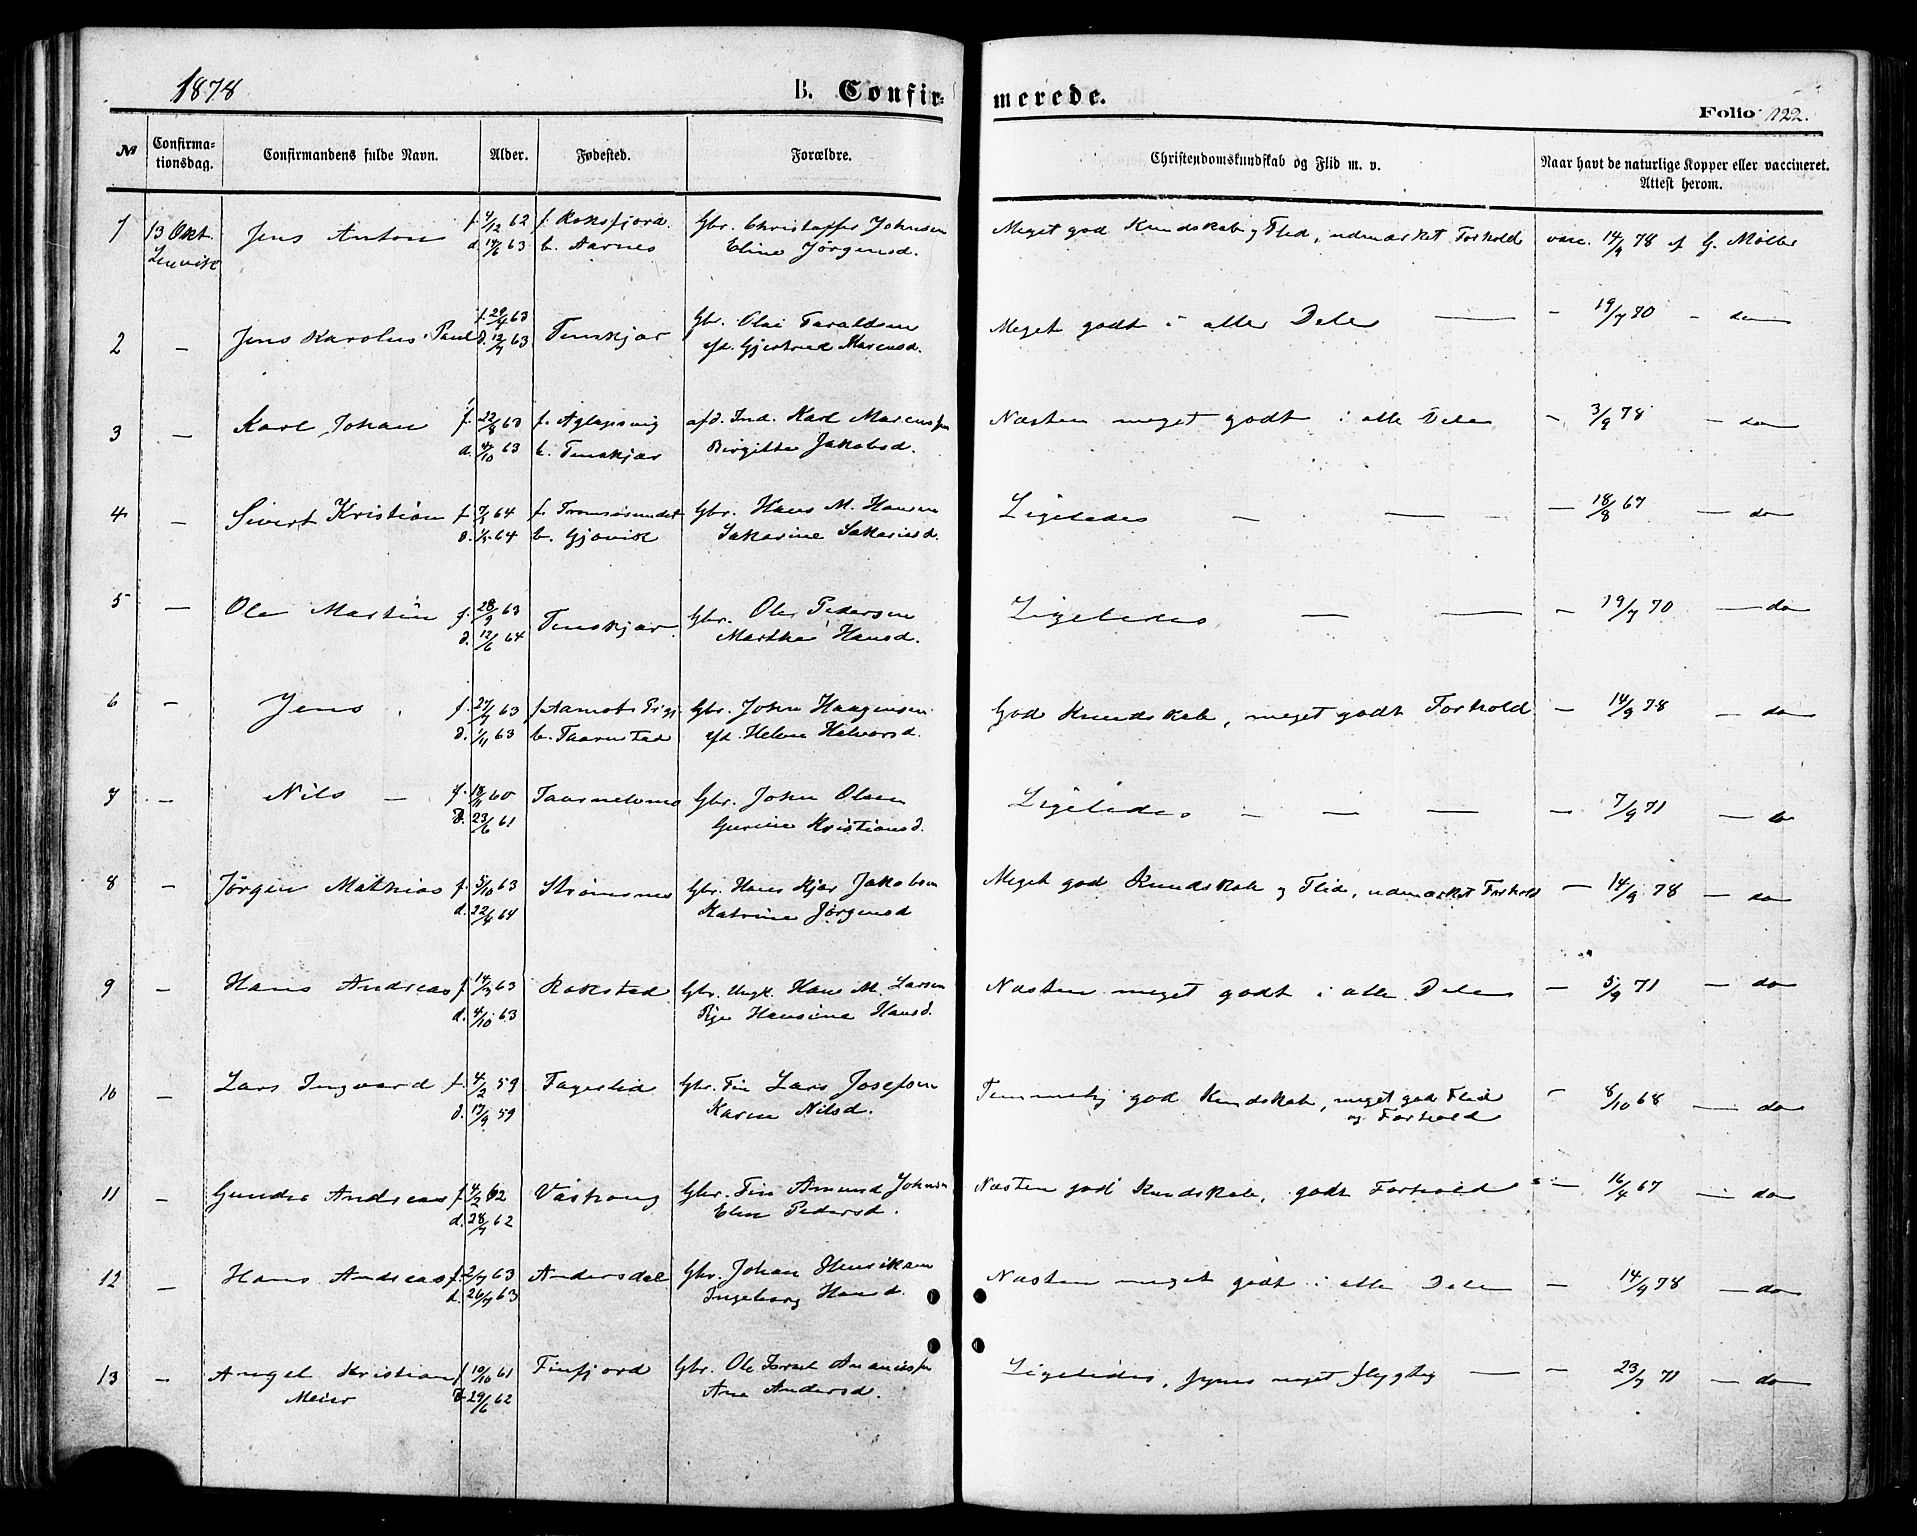 1878
B. Confir-
merede.
Folio 122.
№
Confirma-
tionsdag.
Confirmandens fulde Navn.
Alder.
Fødested.
Forældre.
Christendomskundskab og Flid m. v.
Naar havt de naturlige Kopper eller vaccineret.
Attest herom.
1 13 Okt. Jens Anton f. 4/12 62 f. Roksfjord Gbr. Christoffer Johnsen Meget god Kundskab og Flid, udmærket Forhold vacc. 14/9 78 af G. Møller
Lenvik d. 14/6 63 b. Aarnes Eline Jørgensd.
2 — Jens Karolus Paul f. 29/4 63 Tenskjær Gbr. Olai Taraldsen Meget godt i alle Dele — - 19/7 70 - do
d. 12/7 63 Gjertrud
3 — Karl Johan f. 22/8 63 f. Aglapsvig afd. Ind. Karl Marcussen Næsten meget godt i alle Dele - 3/9 78 - do
d. 4/10 63 b. Tenskjær Birgitte Jakobsd.
4 — Sivert Kristian f. 7/3 64 f. Tromsøsundet Gbr. Hans M. Hansen Ligeledes — — - — 18/8 67 — do
d. 1/5 64 b. Gjøvik Sakarine Sakariasd.
5 — Ole Martin f. 28/9 63 Tenskjær. Gbr. Ole Pedersen Ligeledes — — - 19/7 70 — do
d. 12/6 64 Marthe Hansd.
6 — Jens f. 27/7 63 f. Gbr. John Haagensen God Kundskab, meget godt Forhold - 14/9 78 - do
d. 1/11 63 b. Taarnstad Helene Halvorsd.
7 — Nils — f. 18/11 60 Gbr. John Olsen Ligeledes - — — - 7/9 71 - do
d. 23/6 61 Gurine Kristiansd.
8 — Jørgen Mathias f. 5/10 63 Strømsnes Gbr. Hans Kjær Jakobsen Meget god Kundskab og Flid, udmærket Forhold - 14/9 78 - do
d. 22/4 64 Katrine Jørgensd
9 — Hans Andreas f. 14/7 63 Rokstad Gbr. Ungk. Hans M. Larsen Næsten meget godt i alle Dele - 5/9 71 - do
d. 4/10 63 Pige Hansine Hansd.
10 — Lars Ingvard f. 4/2 59 Fagerlid Gbr. Fin Lars Josefsen Temmelig god Kundskab, meget god Flid - 8/10 68 — do
d. 17/7 59 Karen Nilsd. og Forhold
11 — Andreas f. 4/2 62 Gbr. Fin Amund Johnsen Næsten god Kundskab, godt Forhold - 16/4 67 - do
d. 28/7 62 Elen Pedersd.
12 — Hans Andreas f. 2/7 63 Andersdal Gbr. Johan Henriksen Næsten meget godt i alle Dele - 14/9 78 - do
d. 26/7 63 Ingeborg Hansd.
13 — Angel Kristian f. 10/10 61 Finfjord Gbr. Ole Israel Ananiassen Ligeledes, synes meget flygtig — - 23/7 71 - do
Meier d. 29/6 62 Ane Andersd.